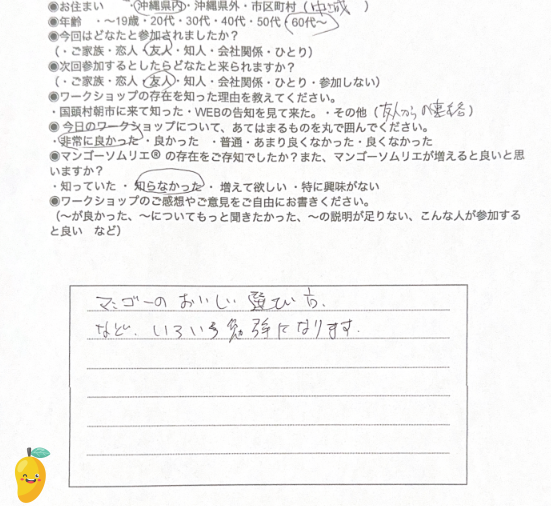 ◉お住まい ・沖縄県内・沖縄県外・市区町村（中城 ）
◉年齢 ・〜19歳・20代・30代・40代・50代・60代〜
◉今回はどなたと参加されましたか？
（・ご家族・恋人・友人・知人・会社関係・ひとり）
◉次回参加するとしたらどなたと来られますか？
（・ご家族・恋人・友人・知人・会社関係・ひとり・参加しない）
◉ワークショップの存在を知った理由を教えてください。
・国頭村朝市に来て知った・WEBの告知を見て来た。・その他（友人からの連絡）
◉ 今日のワークショップについて、あてはまるものを丸で囲んでください。
・非常に良かった・良かった ・普通・あまり良くなかった・良くなかった
◉マンゴーソムリエ® の存在をご存知でしたか？また、マンゴーソムリエが増えると良いと思
いますか？
・知っていた・ 知らなかった ・ 増えて欲しい ・特に興味がない
◉ワークショップのご感想やご意見をご自由にお書きください。
（〜が良かった、〜についてもっと聞きたかった、〜の説明が足りない、こんな人が参加する
と良い など）
マンゴーの おいしい 選び方、
など、いろいろ勉強になります。